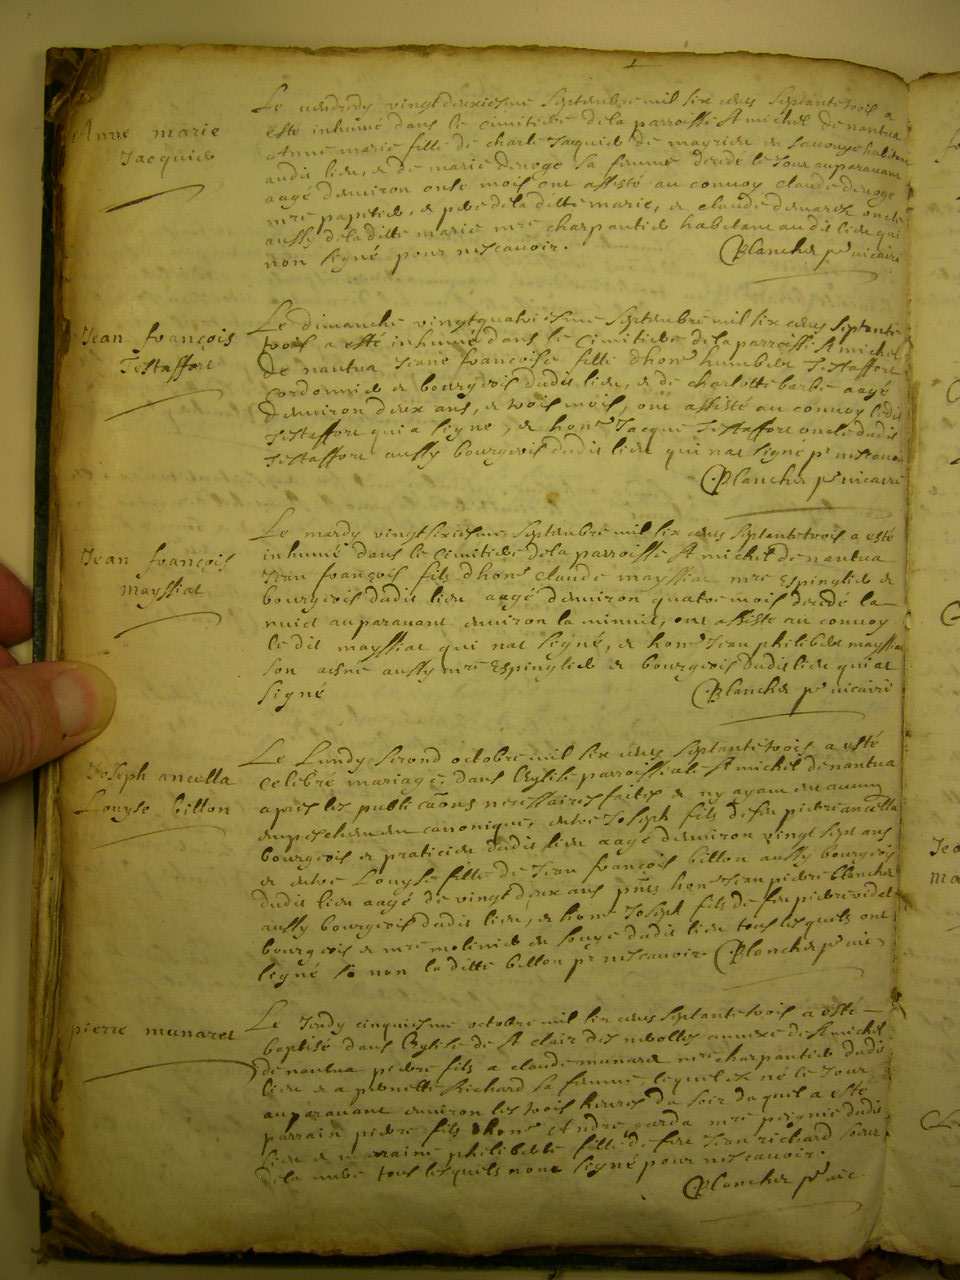 Anne marie
Jacquier
Le vendredy vingtdeuxiesme septembre mil six cens septantetrois a
esté inhumé dans le cimitiere de la parroisse St michel de nantua
Anne marie fille de charle Jacquier de mayriou en
audit lieu, & de marie deroge sa femme decedé le Jour auparavant
aagé denviron onse mois ont assisté au convoy claude deroge
mre papetier, & pere de la ditte marie, & claude oncle
aussy de la ditte marie mre charpantier habitant audit lieu qui
non signé pour ne scavoir. Blanchet pre vicaire
Jean françois
Testaffort
Le dimanche vingtquatriesme septembre mil six cens septante
trois a esté inhumé dans le cimitiere de la parroisse St michel
de nantua Jeane françoise fille dhone humbert Testaffort
cordonnier & bourgeois dudit lieu, & de charlotte barbe aagé
denviron deux ans, & trois mois, ont assisté au convoy ledit
Testaffort qui a signe, & hone Jacque Testaffort oncle dudit
Testaffort aussy bourgeois dudit lieu qui nat signé pr ne scavoir
Blanchet pre vicaire
Jean françois
mayssiat
Le mardy vingtsixiesme septembre mil six cens septantetrois a esté
inhumé dans le cimitiere de la parroisse St michel de nantua
Jean françois fils dhone claude mayssiat mre Espinglier &
bourgeois dudit lieu aagé denviron quatre mois decedé la
nuict auparavant environ la minuit, ont assisté au convoy
le dit mayssiat qui nat signé, & hone Jean philibert mayssiat
son aisné aussy mre Espinglier & bourgeois dudit lieu qui at
signé Blanchet pre vicaire
Joseph ancella
Louyse billon
Le Lundy second octobre mil six cens septantetrois a esté
celebré mariage dans lEglise parroissiale St michel de nantua
apres les publicaons necessaires faites & ny ayant eu aucun
empeschement canonique, entre Joseph fils de feu pierre ancella
bourgeois & praticien dudit lieu aagé denviron vingt sept ans
& entre Louyse fille de Jean françois billon aussy bourgeois
dudit lieu aagé de vingt deux ans pnts hone Jean pierre Blanchet
aussy bourgeois dudit lieu, & hone Joseph fils de feu pierre videt
bourgeois & mre molinier en soye dudit lieu tous lesquels ont
signé si non la ditte billon pr ne scavoir. Blanchet pre vic
pierre munaret
Le Jeudy cinquiesme octobre mil six cens septantetrois a esté
baptisé dans lEglise de St clair des neolles annexe de St michel
de nantua pierre fils a claude munaret mre charpantier dudit
lieu & a pernette Richard sa femme, lequel est né le Jour
auparavant environ les trois heures du soir duquel a esté
parrain pierre fils dhone Andre mre peignie dudit
lieu & marraine philiberte fille de feu Jean richard soeur
de la mere tous lesquels nont signé pour ne scavoir.
Blanchet pre vic